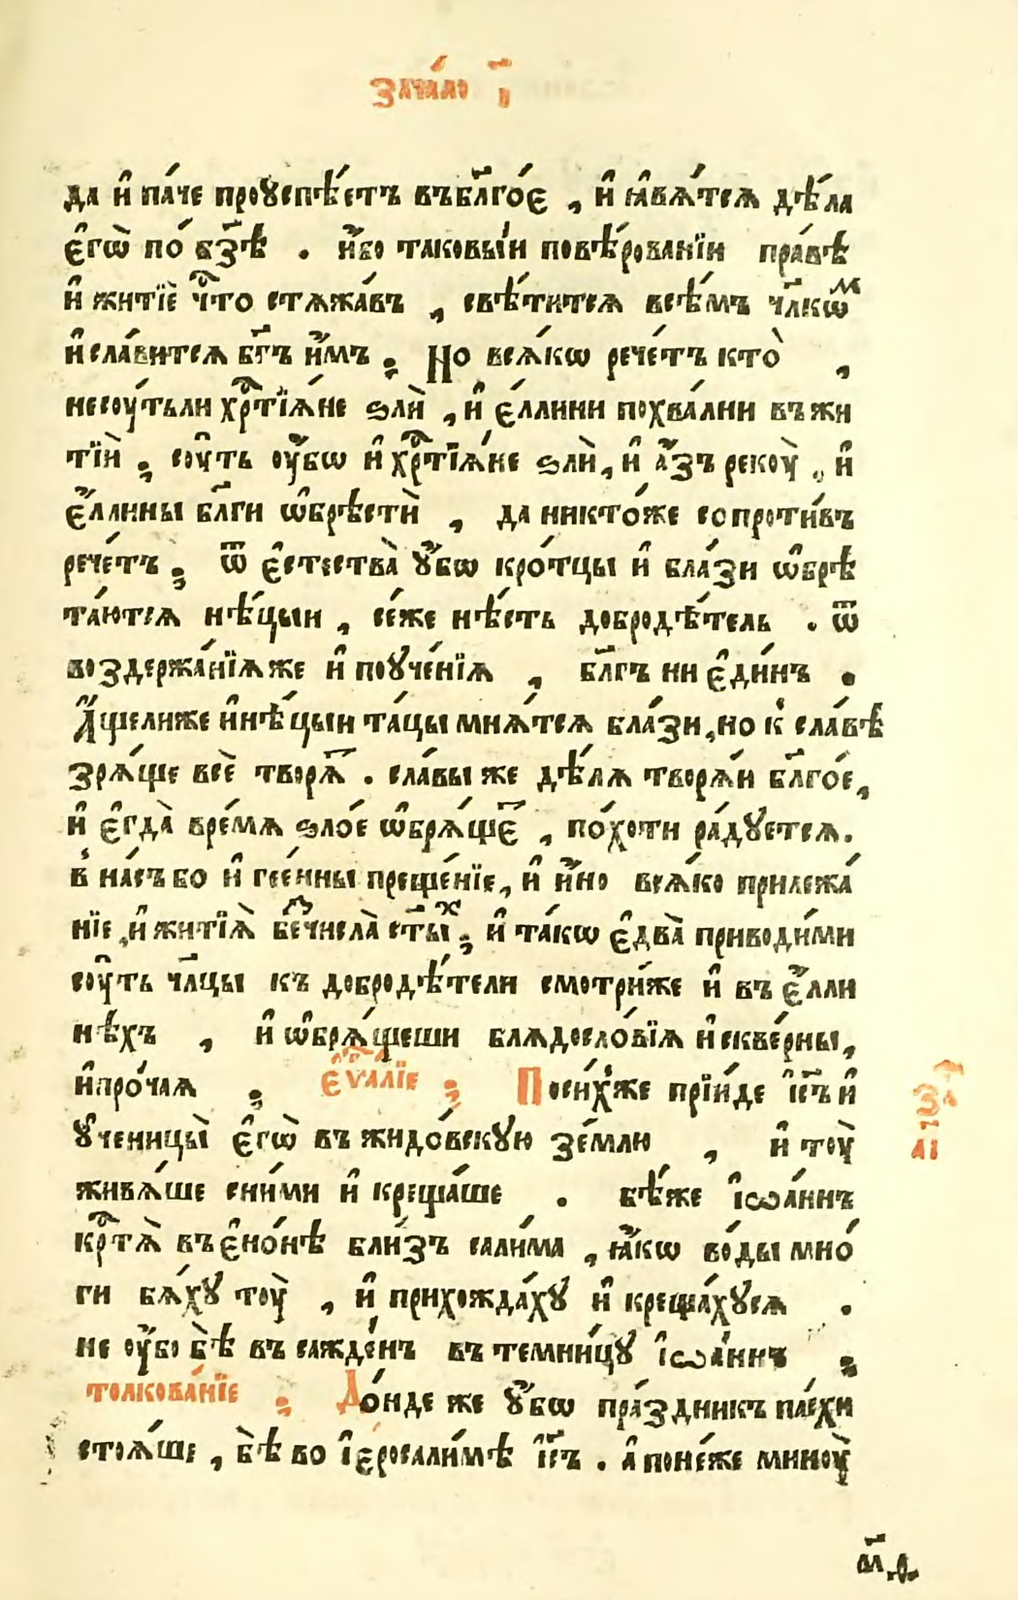 зача́ло і҃
да и҆ па́че проꙋспѣ́етъ въбл҃го́є , и҆ ꙗ҆вѧ́тсѧ дѣ́ла
є҆гѡ̀ по́ бз҃ѣ . и҆́бо таковы́и повѣ́рованїи пра́вѣ
и҆ житїѐ чⷭ҇то стѧжа́въ , свѣ́титсѧ всѣ́мъ чл҃кѡⷨ
и҆сла́витсѧ бг҃ъ и҆́мъ ; Но всѧ́кѡ рече́тъ кто̀ ,
несоу́тьли хрⷭ҇тїѧ́не ѕлѝ , и҆ є҆́ллини похва́лни въжи
тїѝ ; соу́ть оу҆́бѡ и҆ хрⷭ҇тїѧ́не ѕлѝ , и҆ а҆́зъ рекоу̀ , и҆
є҆́ллины бл҃ги ѡ҆брѣ́стѝ , да никто́же сопроти́въ
рече́тъ ; ѿ є҆стества̀ ꙋ҆́бѡ кро́тцы и҆ бла́зи ѡ҆брѣ
та́ютсѧ нѣ́цыи , се́же нѣ́сть добродѣ́тель . ѿ
воздержа́нїѧже и҆ поꙋче́нїѧ , бл҃гъ ни є҆ди́нъ .
А҆́щелиже и҆нѣ́цыи та́цы мнѧ́тсѧ бла́зи , но к̾ сла́вѣ
зрѧ́ще всѐ творѧ́т . сла́вы же дѣ́лѧ творѧ́и бл҃го́е ,
и҆ є҆гда̀ вре́мѧ ѕло́е ѡ҆брѧ́щеⷮ , по́хоти ра́дꙋетсѧ .
в̾ на́съ бо и҆ гее́нны преще́нїе , и҆ и҆́но всѧ́ко прилежа́
нїе , и҆ житїѧ̀ беⷥчисла̀ ст҃ы́ⷯ ; и҆ та́кѡ є҆два̀ приводи́ми
соу́ть чл҃цы къ добродѣ́тели смотри́же и҆ въ є҆́лли
нѣхъ , и҆ ѡ҆брѧ́щеши блѧдосло́вїѧ и҆скве́рны ,
и҆про́чаѧ ; є҆ѵⷢ҇а́лїе ; Поси́хже прїи́де і҆с҃ъ и҆
ꙋ҆ченицы̀ є҆гѡ̀ въ жидо́вскую зе́млю , и҆ тоу̀
живѧ́ше сни́ми и҆ креща́ше . бѣ́же і҆ѡа́ннъ
крⷭ҇тѧ̀ въ є҆но́нѣ бли́зъ салима , ꙗ҆́кѡ во́ды мно́
ги бѧ́хꙋ тоу̀ , и҆ прихожда́хꙋ и҆ креща́хꙋсѧ .
не оу҆́бо бѣ̀ въ сажде́нъ въ темни́цꙋ і҆ѡа́ннъ ;
толкова́нїе ; До́нде же ꙋ҆́бѡ пра́здникъ па́схи
стоѧ́ше , бѣ̀ во і҆єросали́мѣ і҆с҃ъ . а҆ поне́же миноу̀
за҃ч
а҃і